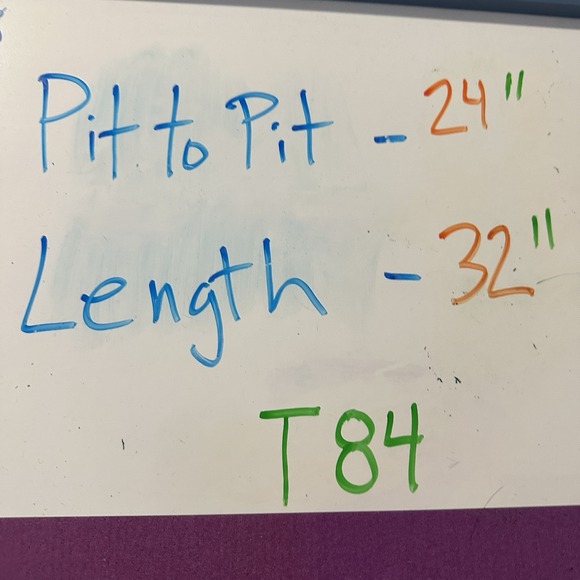 Pit to Pit - 24"
Length - 32"
T84